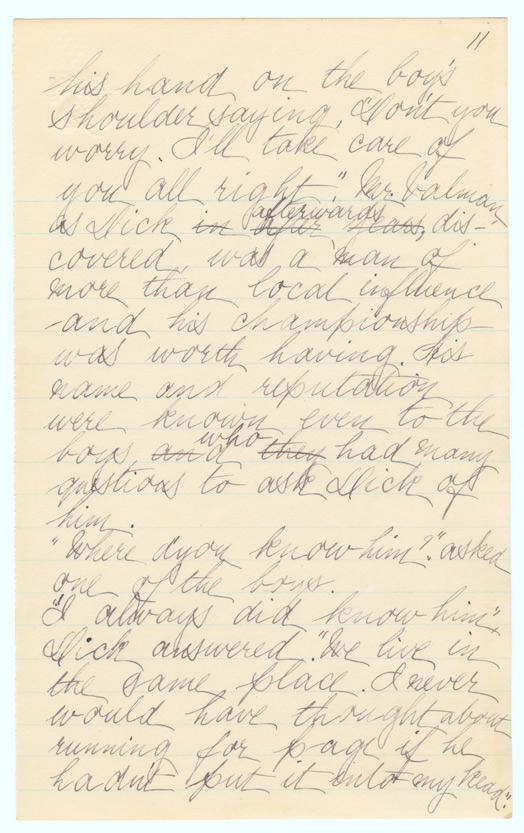 11
his hand on the boy's
shoulder saying, "Don't you
worry. I'll take care of
you all right." Mr. Valman,
as Dick in after years, dis-
afterwards
covered, was a man of
more than local influence
-and his championship
was worth having. His
name and reputation
were known even to the
boys, and they had many
who
questions to ask Dick of
him.
"Where d'you know him?" asked
one of the boys.
"I always did know him",
Dick answered. "We live in
the same place. I never
would have thought about
running for page if he
hadn't put it into my head."